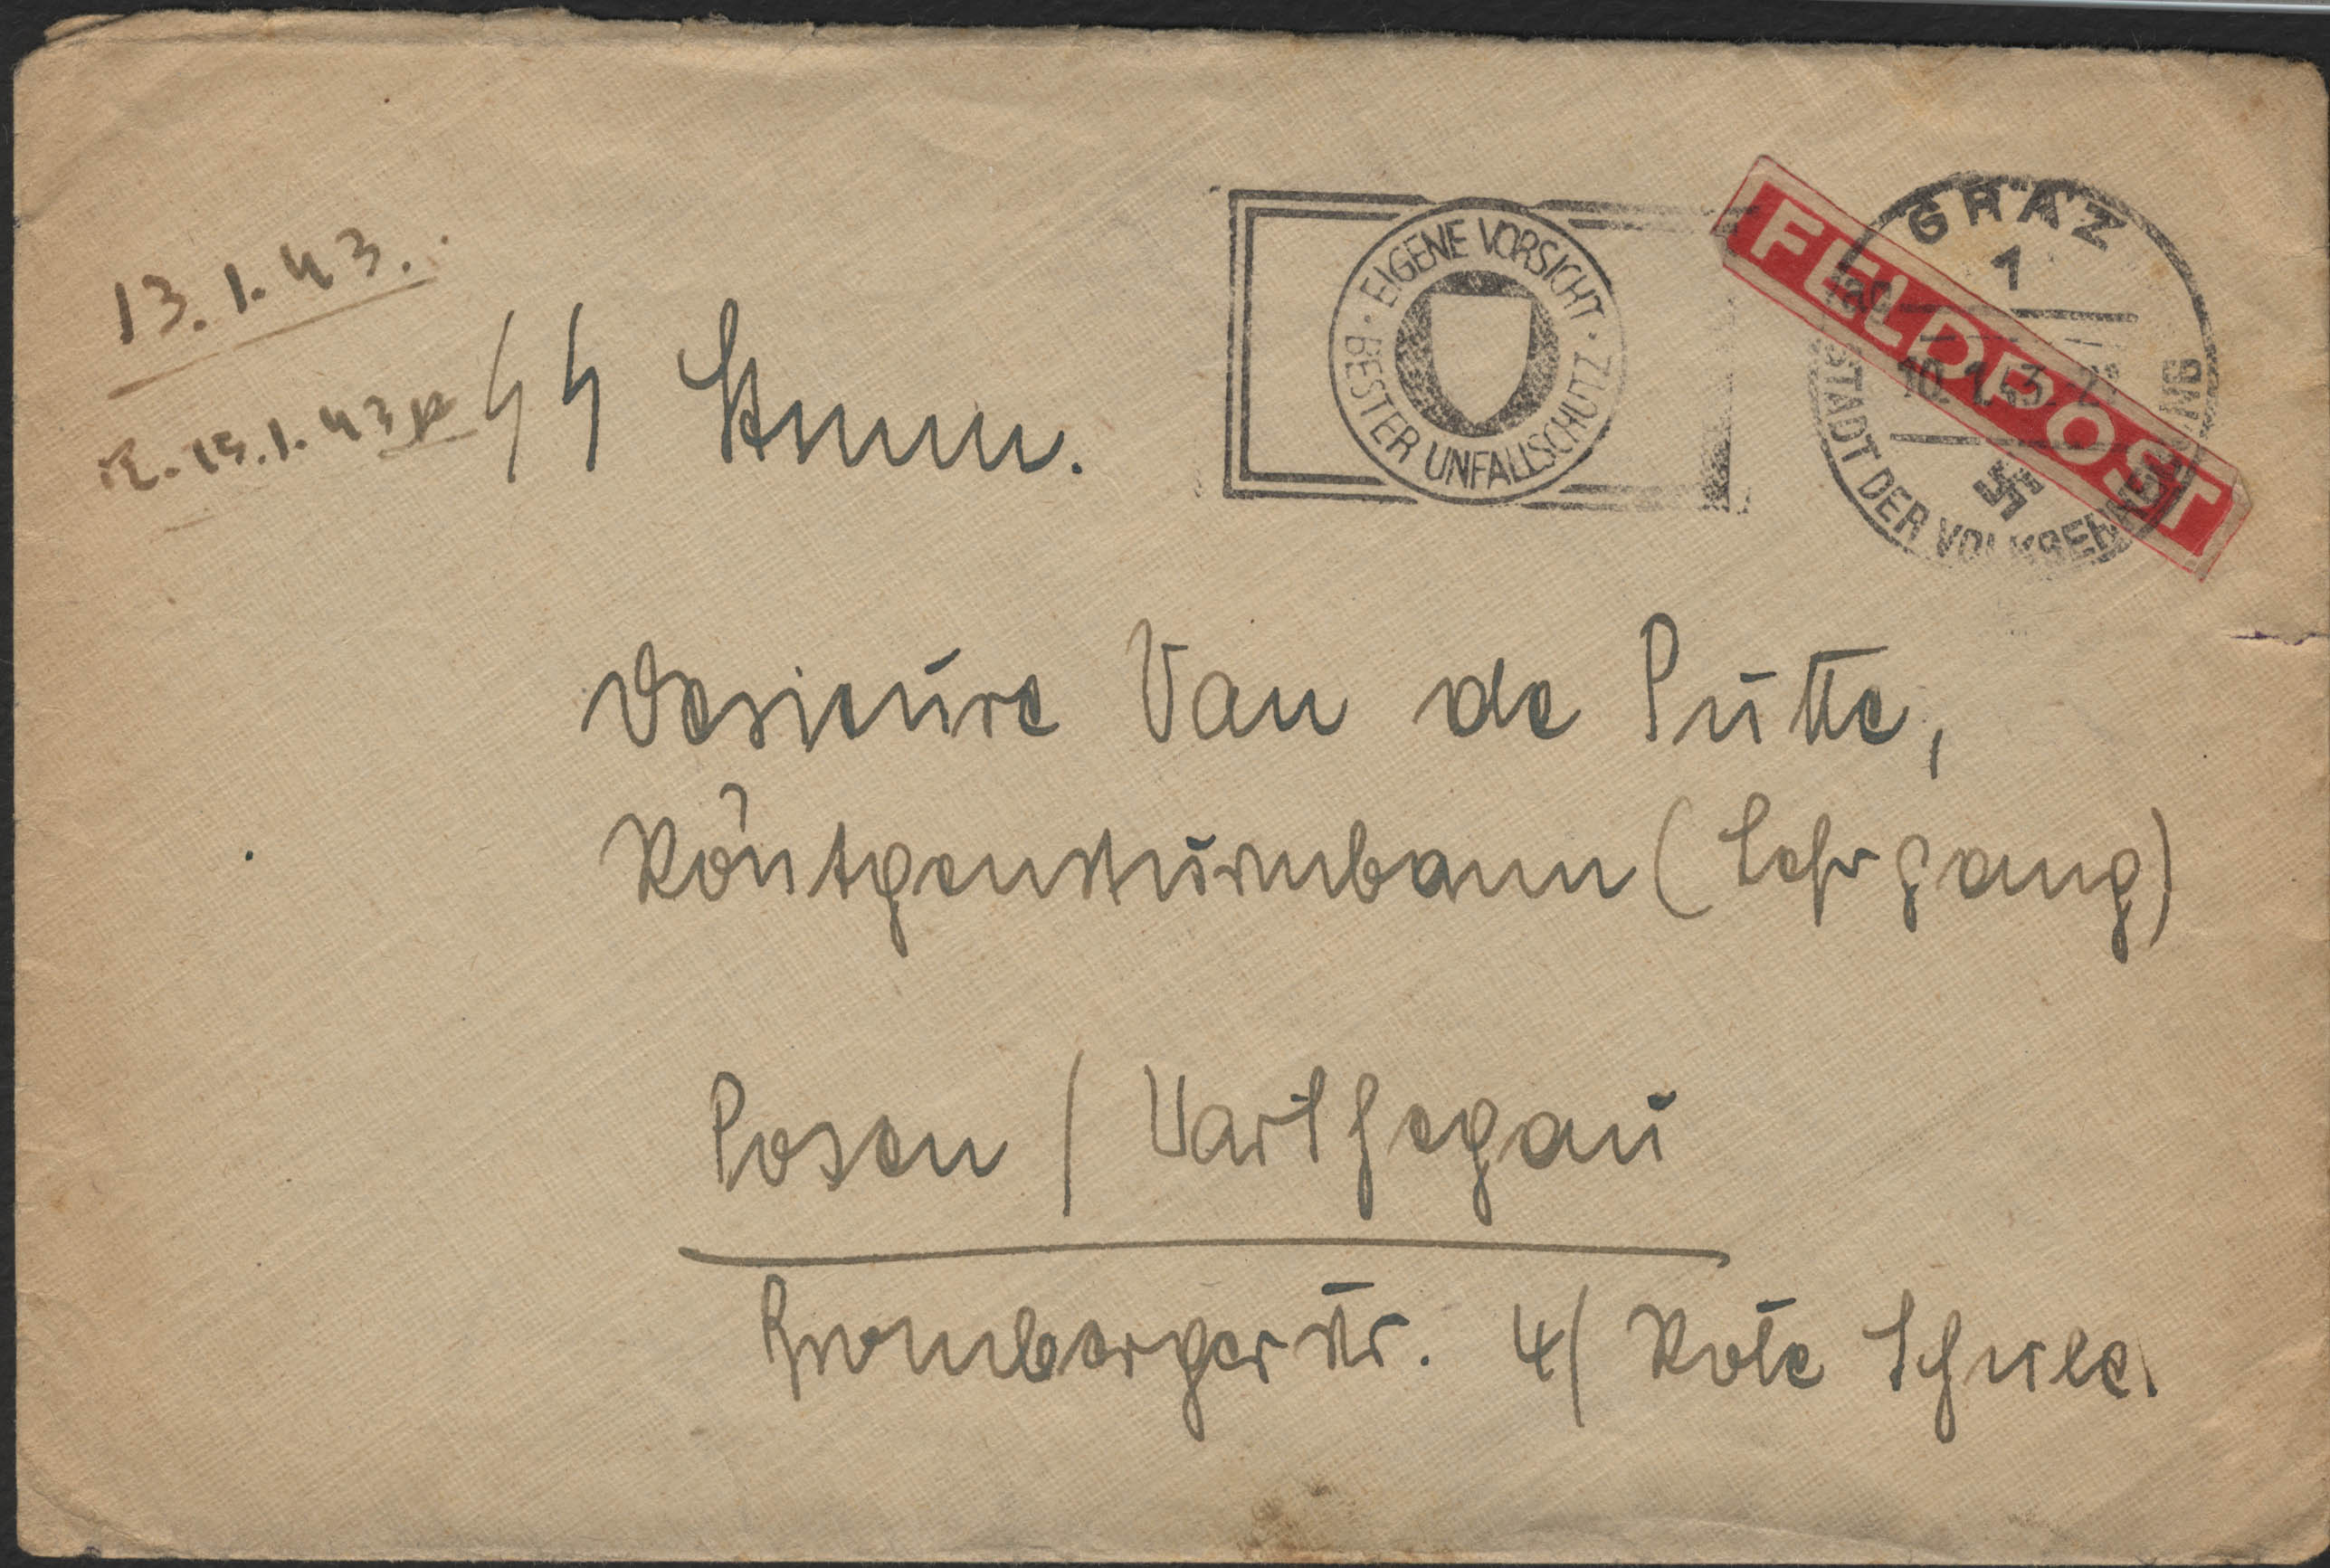 13.1.43.
15.1.43
SS Stmm.
EIGENE VORSICHT · BESTER UNFALLSCHUTZ ·
FELDPOST
GRAZ
1
10.1.43
STADT DER VOLKSERHEBUNG
Desieure Van de Putte,
Röntgensturmbann (Lehrgang)
Posen / Warthegau
Brombergerstr. 4/ Rote Schule.